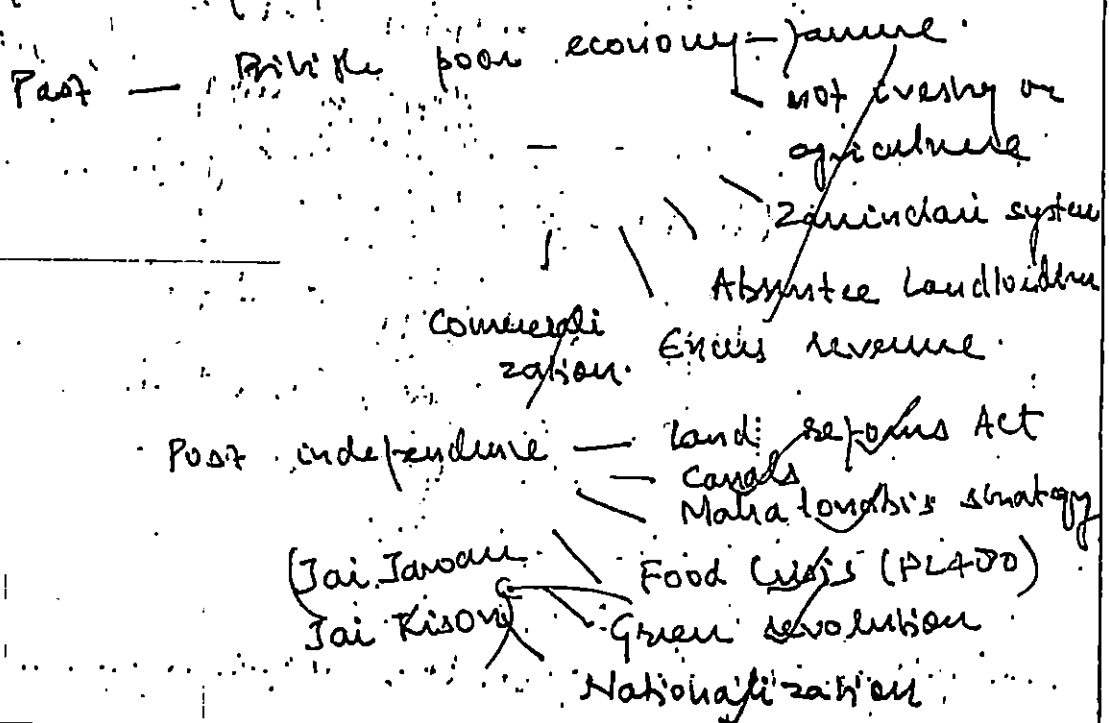 Past — British poor economy - famine
not investing on
agriculture
Zamindari system
Absentee Landlordism
Commerciali
zation.
Excess revenue.
Post independence — Land reforms Act
— Canals
Mahalanobis strategy
Food Crisis (PL480)
(Jai Jawan
Jai Kisan)
Green revolution
Nationalization